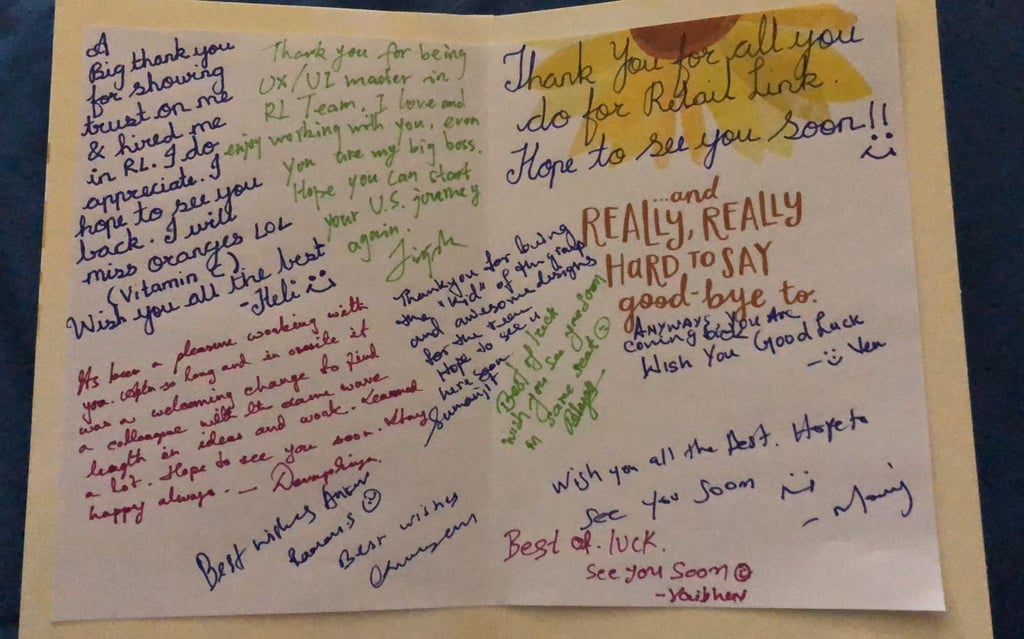 A
Big thank you
for showing
trust on me
& hired me
in RL. I do
appreciate. I
hope to see you
back. I will
miss oranges LOL
(Vitamin C)
Wish you all the best
- Heli
Thank you for being
UX/UI master in
RL Team. I love and
enjoy working with you, even
You are my big boss.
Hope you can start
your U.S. journey
again.
Its been a pleasure working with
you. After so long and in onsite it
was a welcoming change to find
a colleague with the same wave
length in ideas and work. Learned
a lot. Hope to see you soon. Stay
happy always. -
Thank you for being
the "kid" of the group
and awesome designs
for the team
Hope to see u
here soon
Best wishes
Best wishes
Thank You for all you
do for Retail Link.
Hope to see you soon!!
...and
REALLY, REALLY
HARD TO SAY
good-bye to.
Best of luck
wish you see you soon
in same seat
ANYWAYS, YOU ARE
coming back
Wish You Good Luck
- Ven
Wish you all the Best. Hope to
See You Soon
Best of luck.
See you soon
- Vaibhav